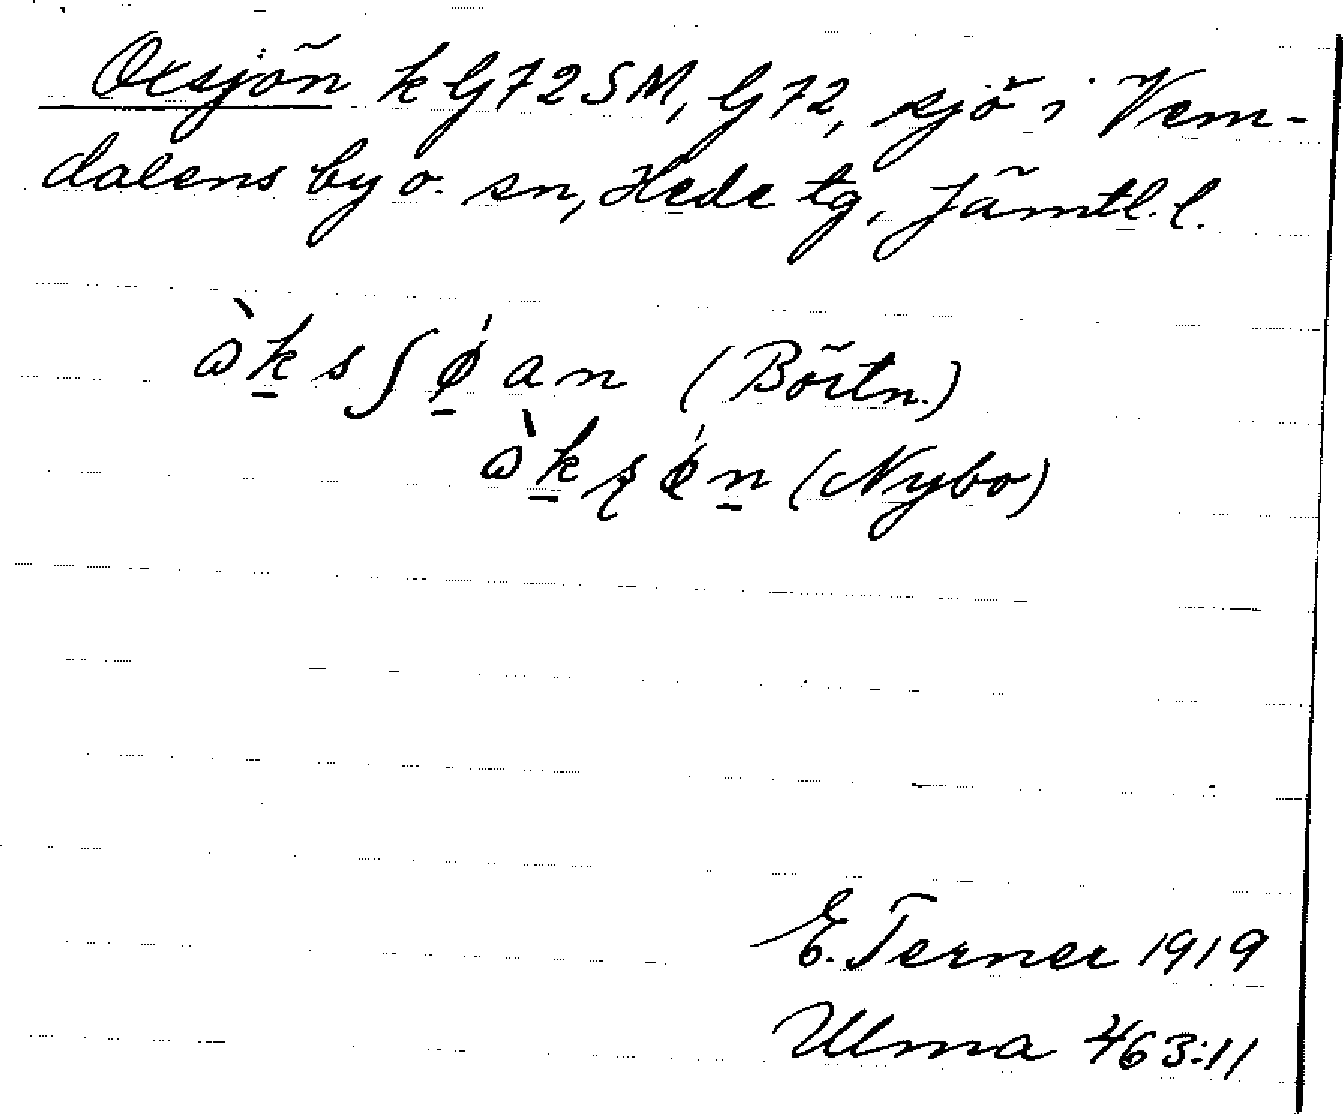 Oxsjön k G72SM, G72, sjö i Vem-
dalens by o. sn, Hede tg, Jämtl. l.
ὰk̲sʃǿ̲an (Börtn.)
ὰk̲ʂǿn̲ (Nybo)
E. Terner 1919
Ulma 463:11